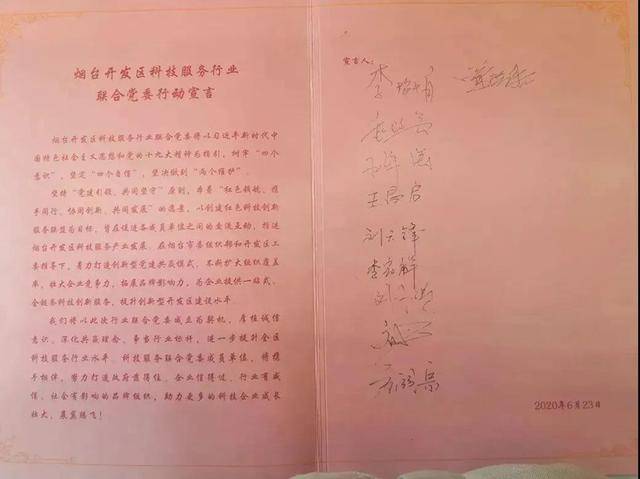 烟台开发区科技服务行业
联合党委行动宣言
烟台开发区科技服务行业联合党委将以习近平新时代中
国特色社会主义思想和党的十九大精神为指引，树牢“四个
意识”，坚定“四个自信”，坚决做到“两个维护”。
坚持“党建引领、共同坚守”原则，本着“红色领航、携
手同行、协同创新、共同发展”的愿景，以创建红色科技创新
服务联盟为目标，旨在促进各成员单位之间的交流互动，推进
烟台开发区科技服务产业发展。在烟台市委组织部和开发区工
委指导下，着力打造创新型党建共赢模式，不断扩大组织覆盖
率，壮大企业竞争力，拓展品牌影响力，为企业提供一站式、
全链条科技创新服务，提升创新型开发区建设水平。
我们将以此次行业联合党委成立为契机，厚植诚信
意识、深化共赢理念、争当行业标杆，进一步提升全区
科技服务行业水平。科技服务联合党委成员单位，将携
手相伴，努力打造政府靠得住、企业信得过、行业有威
信、社会有影响的品牌组织，助力更多的科技企业成长
壮大、展翼腾飞！
宣言人：
王昌启
刘天锋
2020年6月23日